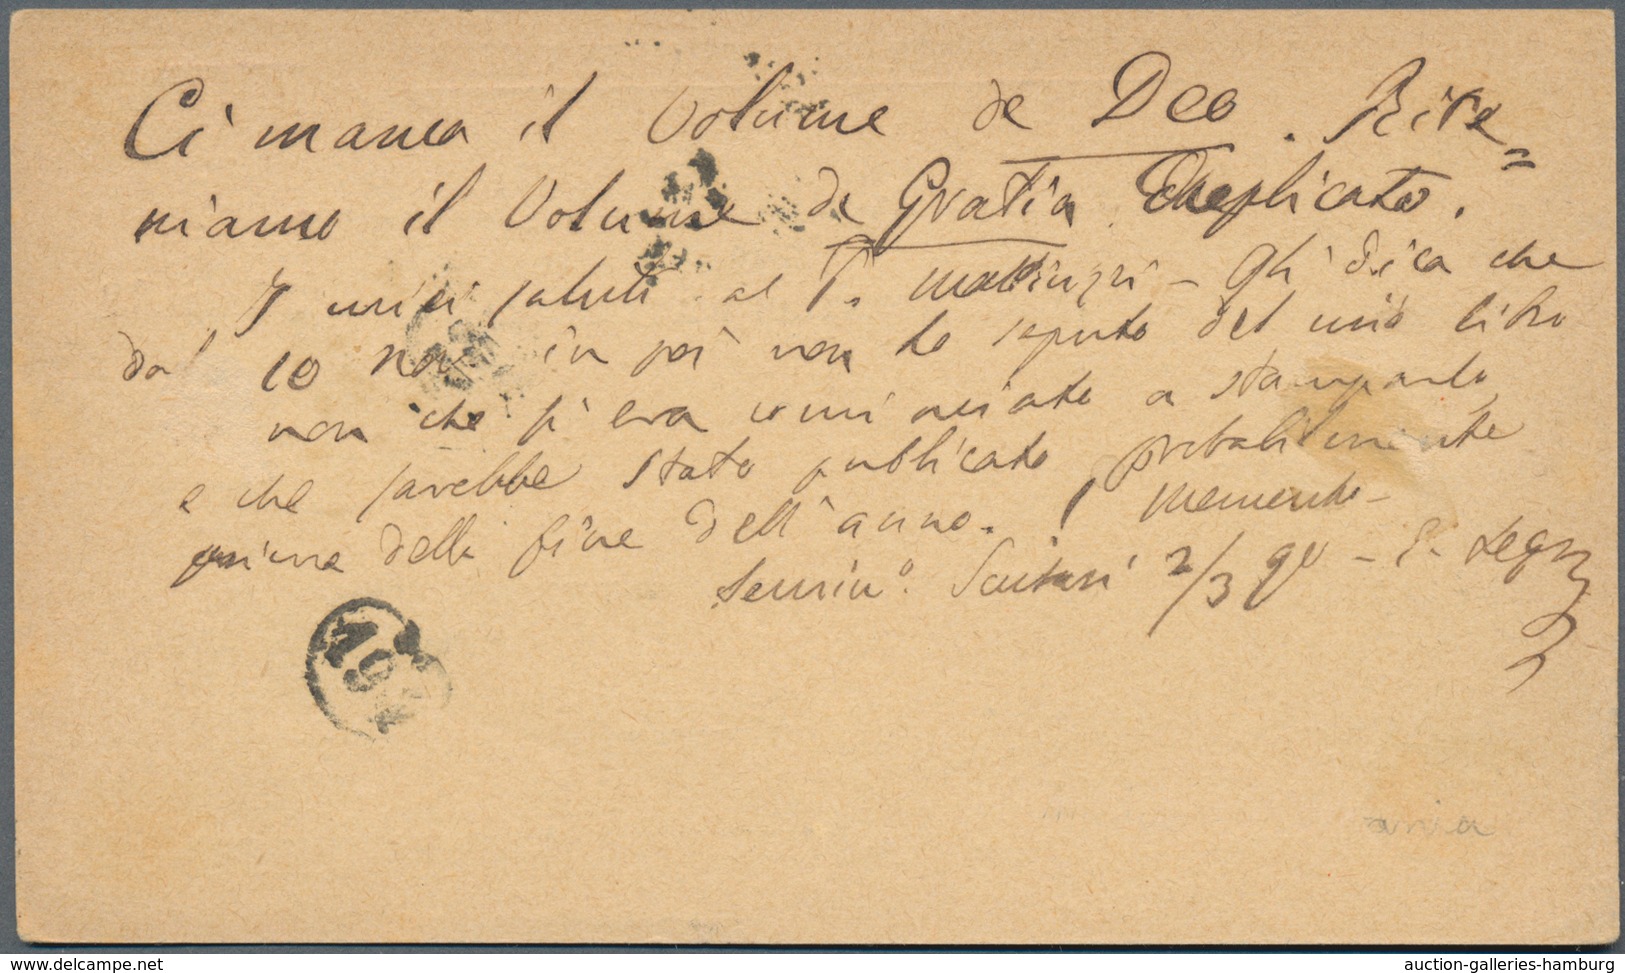 Ci manca il Volume de Deo. Rite=
niamo il Volume de Gratia duplicato.
I miei saluti al P. Mattiuzzi - gli dica che
dal 10 Nov in poi non ho saputo del mio libro
non che si era cominciato a stamparlo
e che sarebbe stato pubblicato probabilmente
prima della fine dell'anno. Memento -
Semin.o Scutari 2/3 90 -
19
delcampe.net
auction-galleries-hamburg